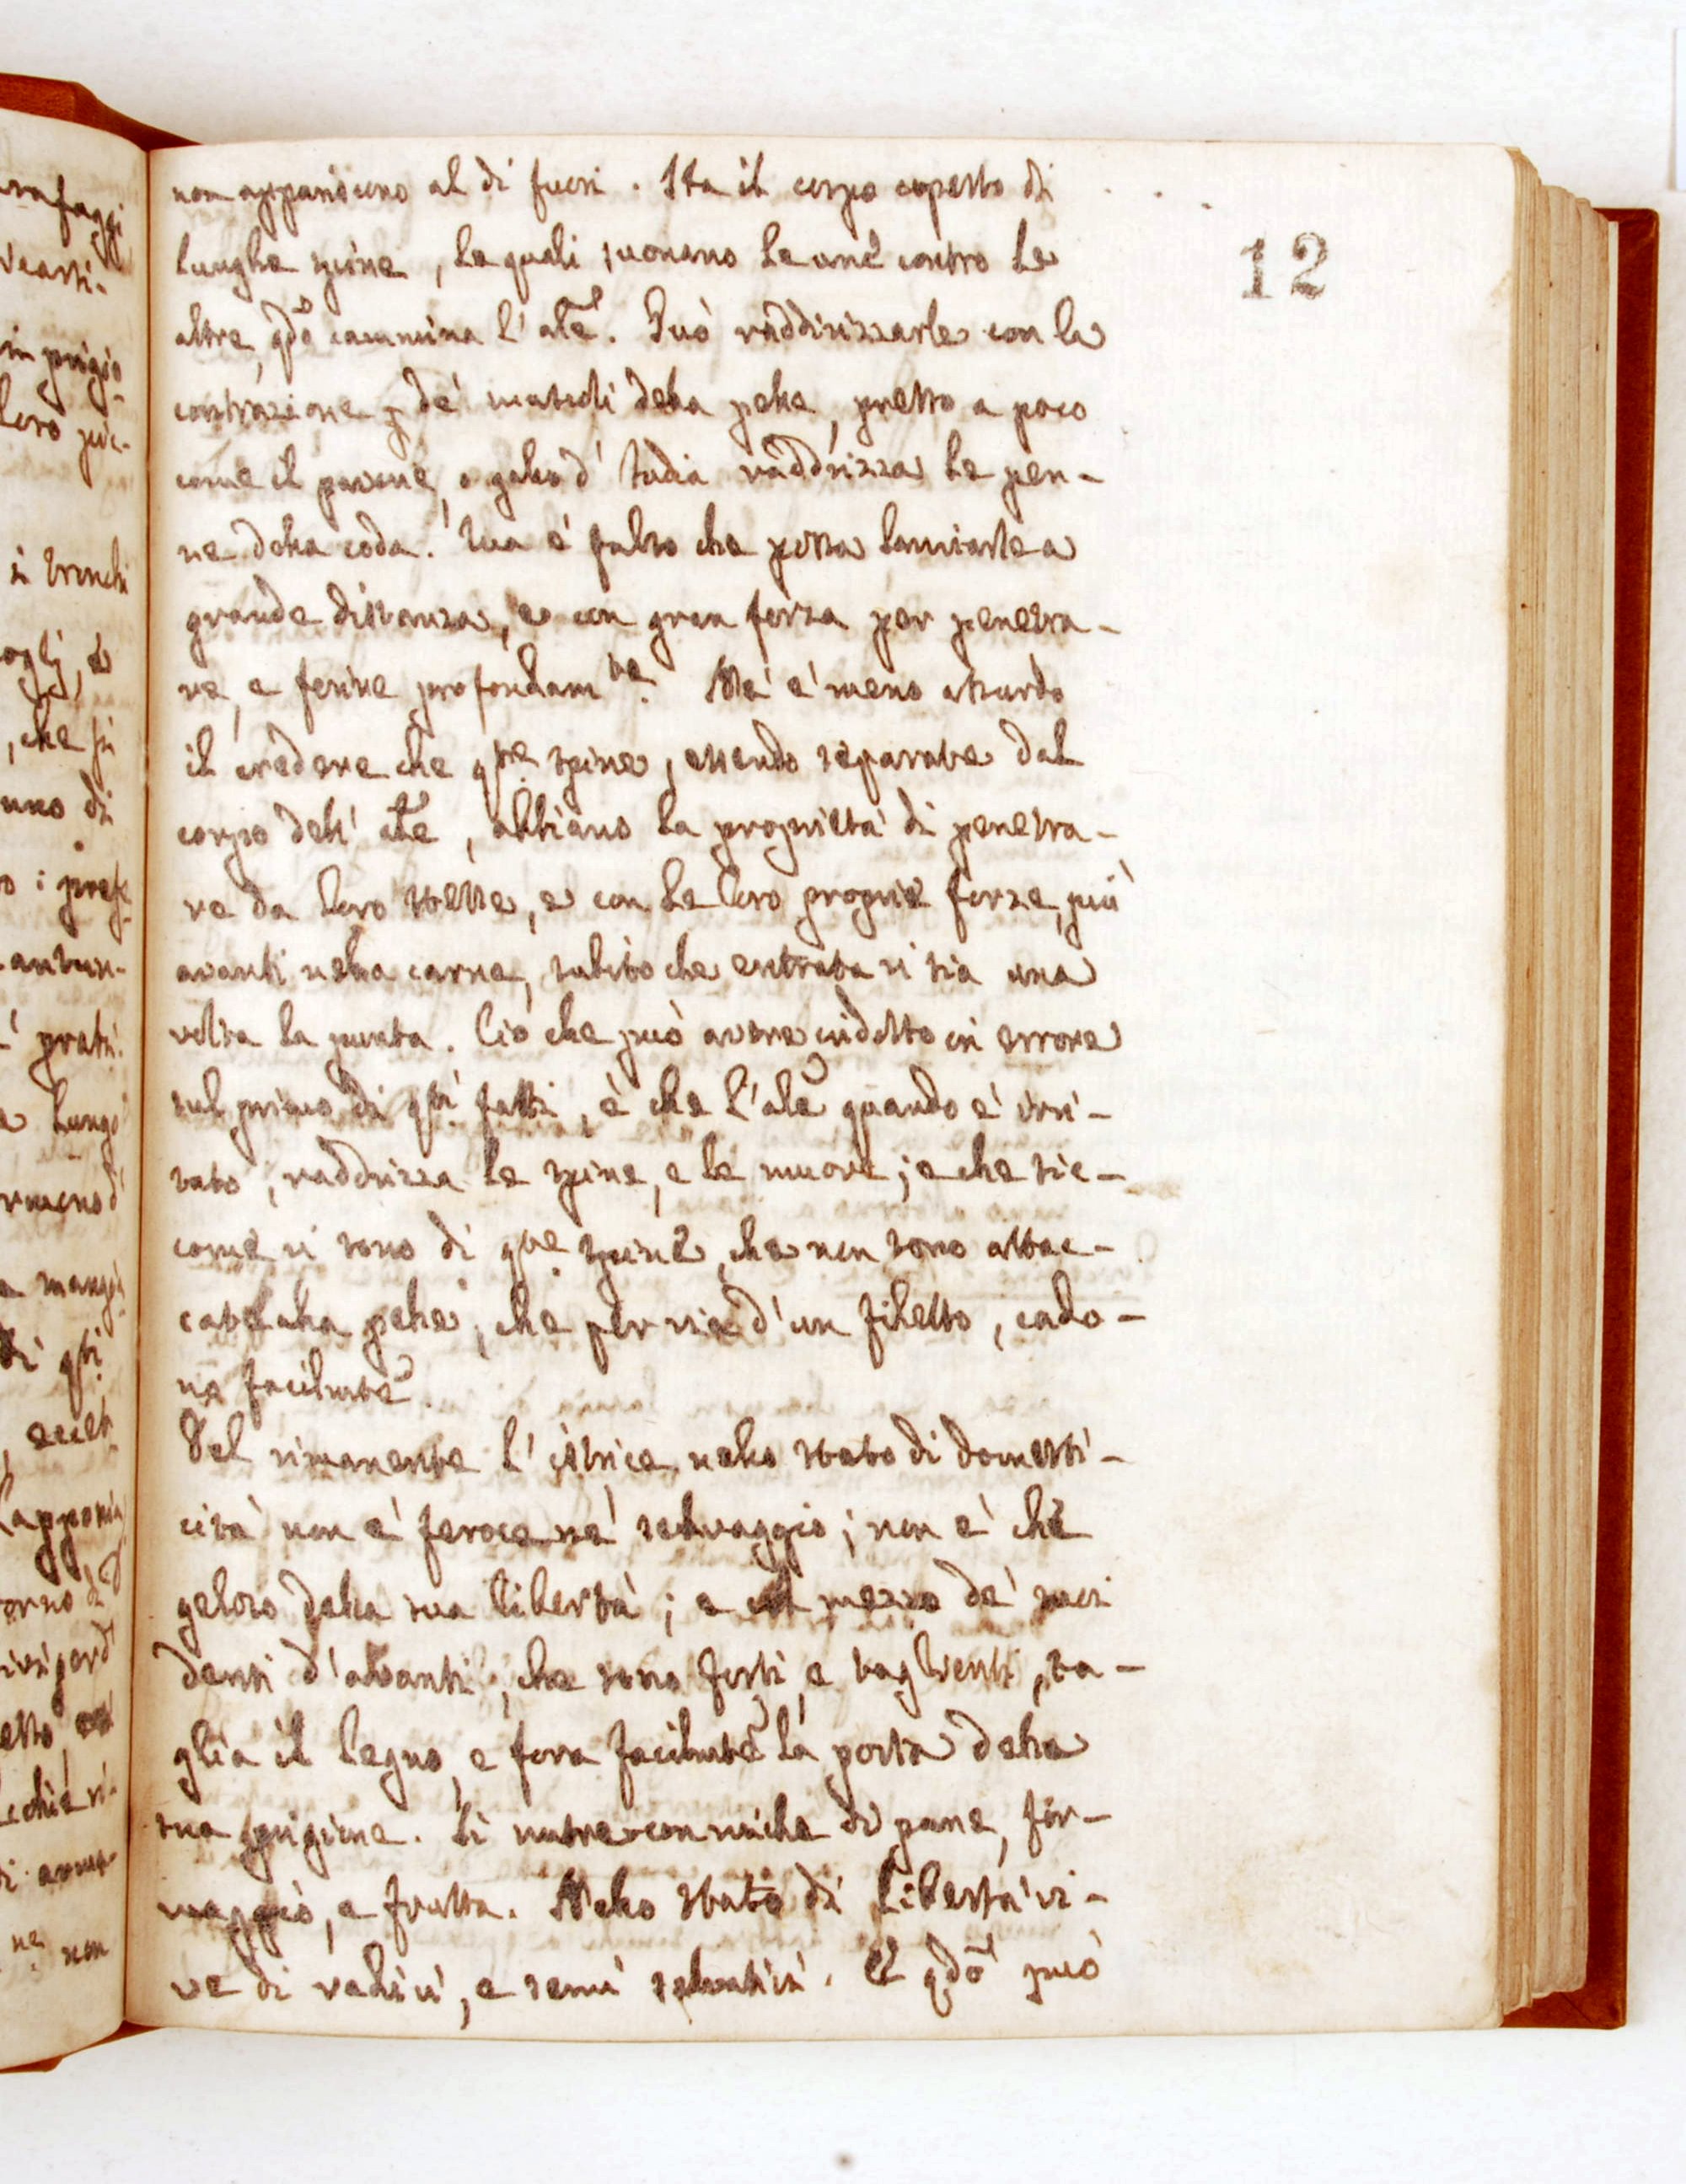 12
non appariscono al di fuori. Ha il corpo coperto di
lunghe spine, le quali suonano le une contro le
altre, qdo cammina l'ale. Può raddirizzarle con la
contrazione de' muscoli della pelle, presso a poco
come il pavone, o gallo d'India raddrizza le pen-
ne della coda. Ma è falso che possa lanciarle a
grande distanza, e con gran forza per penetra-
re, e ferire profondamte. Nè è meno assurdo
il credere che qte spine, essendo separate dal
corpo dell' ale, abbiano la proprietà di penetra-
re da loro stesse, e con le loro proprie forze, più
avanti nella carne, subito che entrata vi sia una
volta la punta. Ciò che può avere indotto in errore
sul primo di qti fatti, è che l'ale quando è irri-
tato, raddrizza le spine, e le muove; e che sic-
come vi sono di qte spine, che non sono attac-
cate alla pelle, che per via d'un filetto, cado-
no facilmte.
Del rimanente l'istrice nello stato di domesti-
cità non è feroce nè selvaggio; non è che
geloso della sua libertà; a mezzo de' suoi
denti d'avanti, che sono forti, e taglienti, ta-
glia il legno, e fora facilmte la porta della
sua prigione. Si nutre con miche di pane, for-
maggio, e frutta. Nello stato di libertà vi-
ve di radici, e semi selvatici. E qdo può